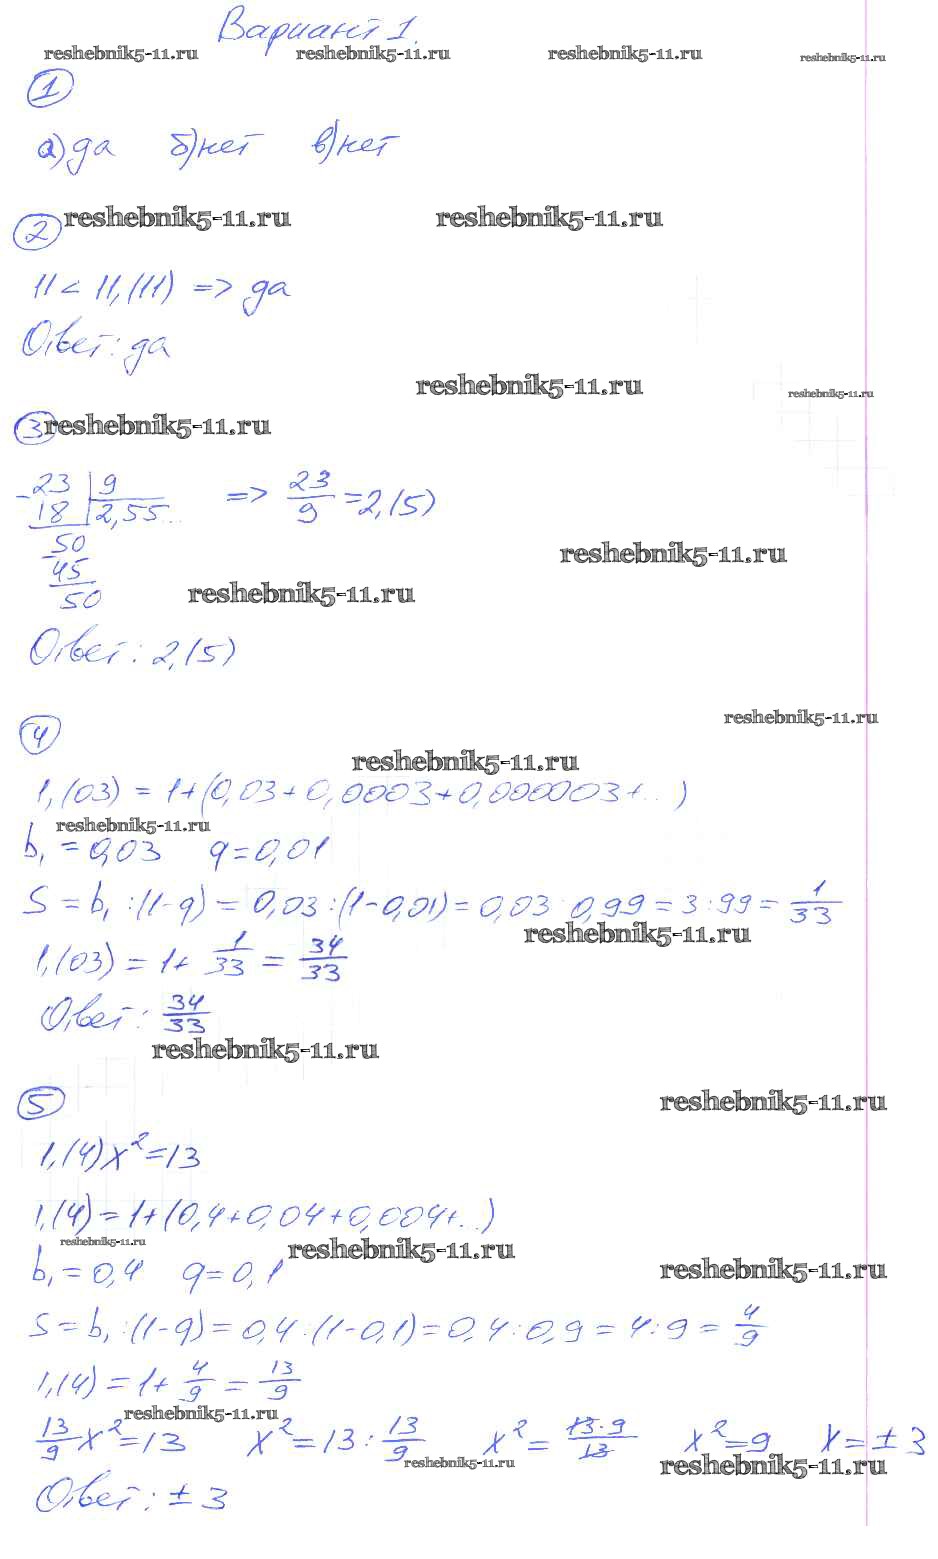 Вариант 1.
reshebnik5-11.ru reshebnik5-11.ru reshebnik5-11.ru reshebnik5-11.ru
1
а) да б) нет в) нет
reshebnik5-11.ru reshebnik5-11.ru
2
11 < 11,(11) => да
Ответ: да
reshebnik5-11.ru reshebnik5-11.ru
3 reshebnik5-11.ru
-23 | 9 => 23/9 = 2,(5)
18 | 2,55...
-50
reshebnik5-11.ru
45
50 reshebnik5-11.ru
Ответ: 2,(5)
reshebnik5-11.ru
4
reshebnik5-11.ru
1,(03) = 1+(0,03+0,0003+0,000003+...)
reshebnik5-11.ru
b₁ = 0,03 q = 0,01
S = b₁ : (1-q) = 0,03 : (1-0,01) = 0,03 : 0,99 = 3 : 99 = 1/33
reshebnik5-11.ru
1,(03) = 1 + 1/33 = 34/33
Ответ: 34/33
reshebnik5-11.ru
5 reshebnik5-11.ru
1,(4)x² = 13
1,(4) = 1+(0,4+0,04+0,004+...)
reshebnik5-11.ru reshebnik5-11.ru
b₁ = 0,4 q = 0,1 reshebnik5-11.ru
S = b₁ : (1-q) = 0,4 : (1-0,1) = 0,4 : 0,9 = 4 : 9 = 4/9
1,(4) = 1 + 4/9 = 13/9
reshebnik5-11.ru
13/9 x² = 13 x² = 13 : 13/9 x² = 13·9/13 x² = 9 x = ±3
reshebnik5-11.ru reshebnik5-11.ru
Ответ: ±3